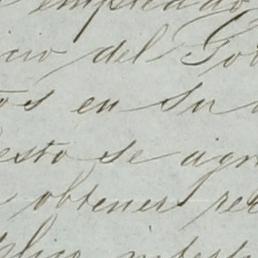 empleado
cio del Go
os en su
esto se agr
obtener re
plico